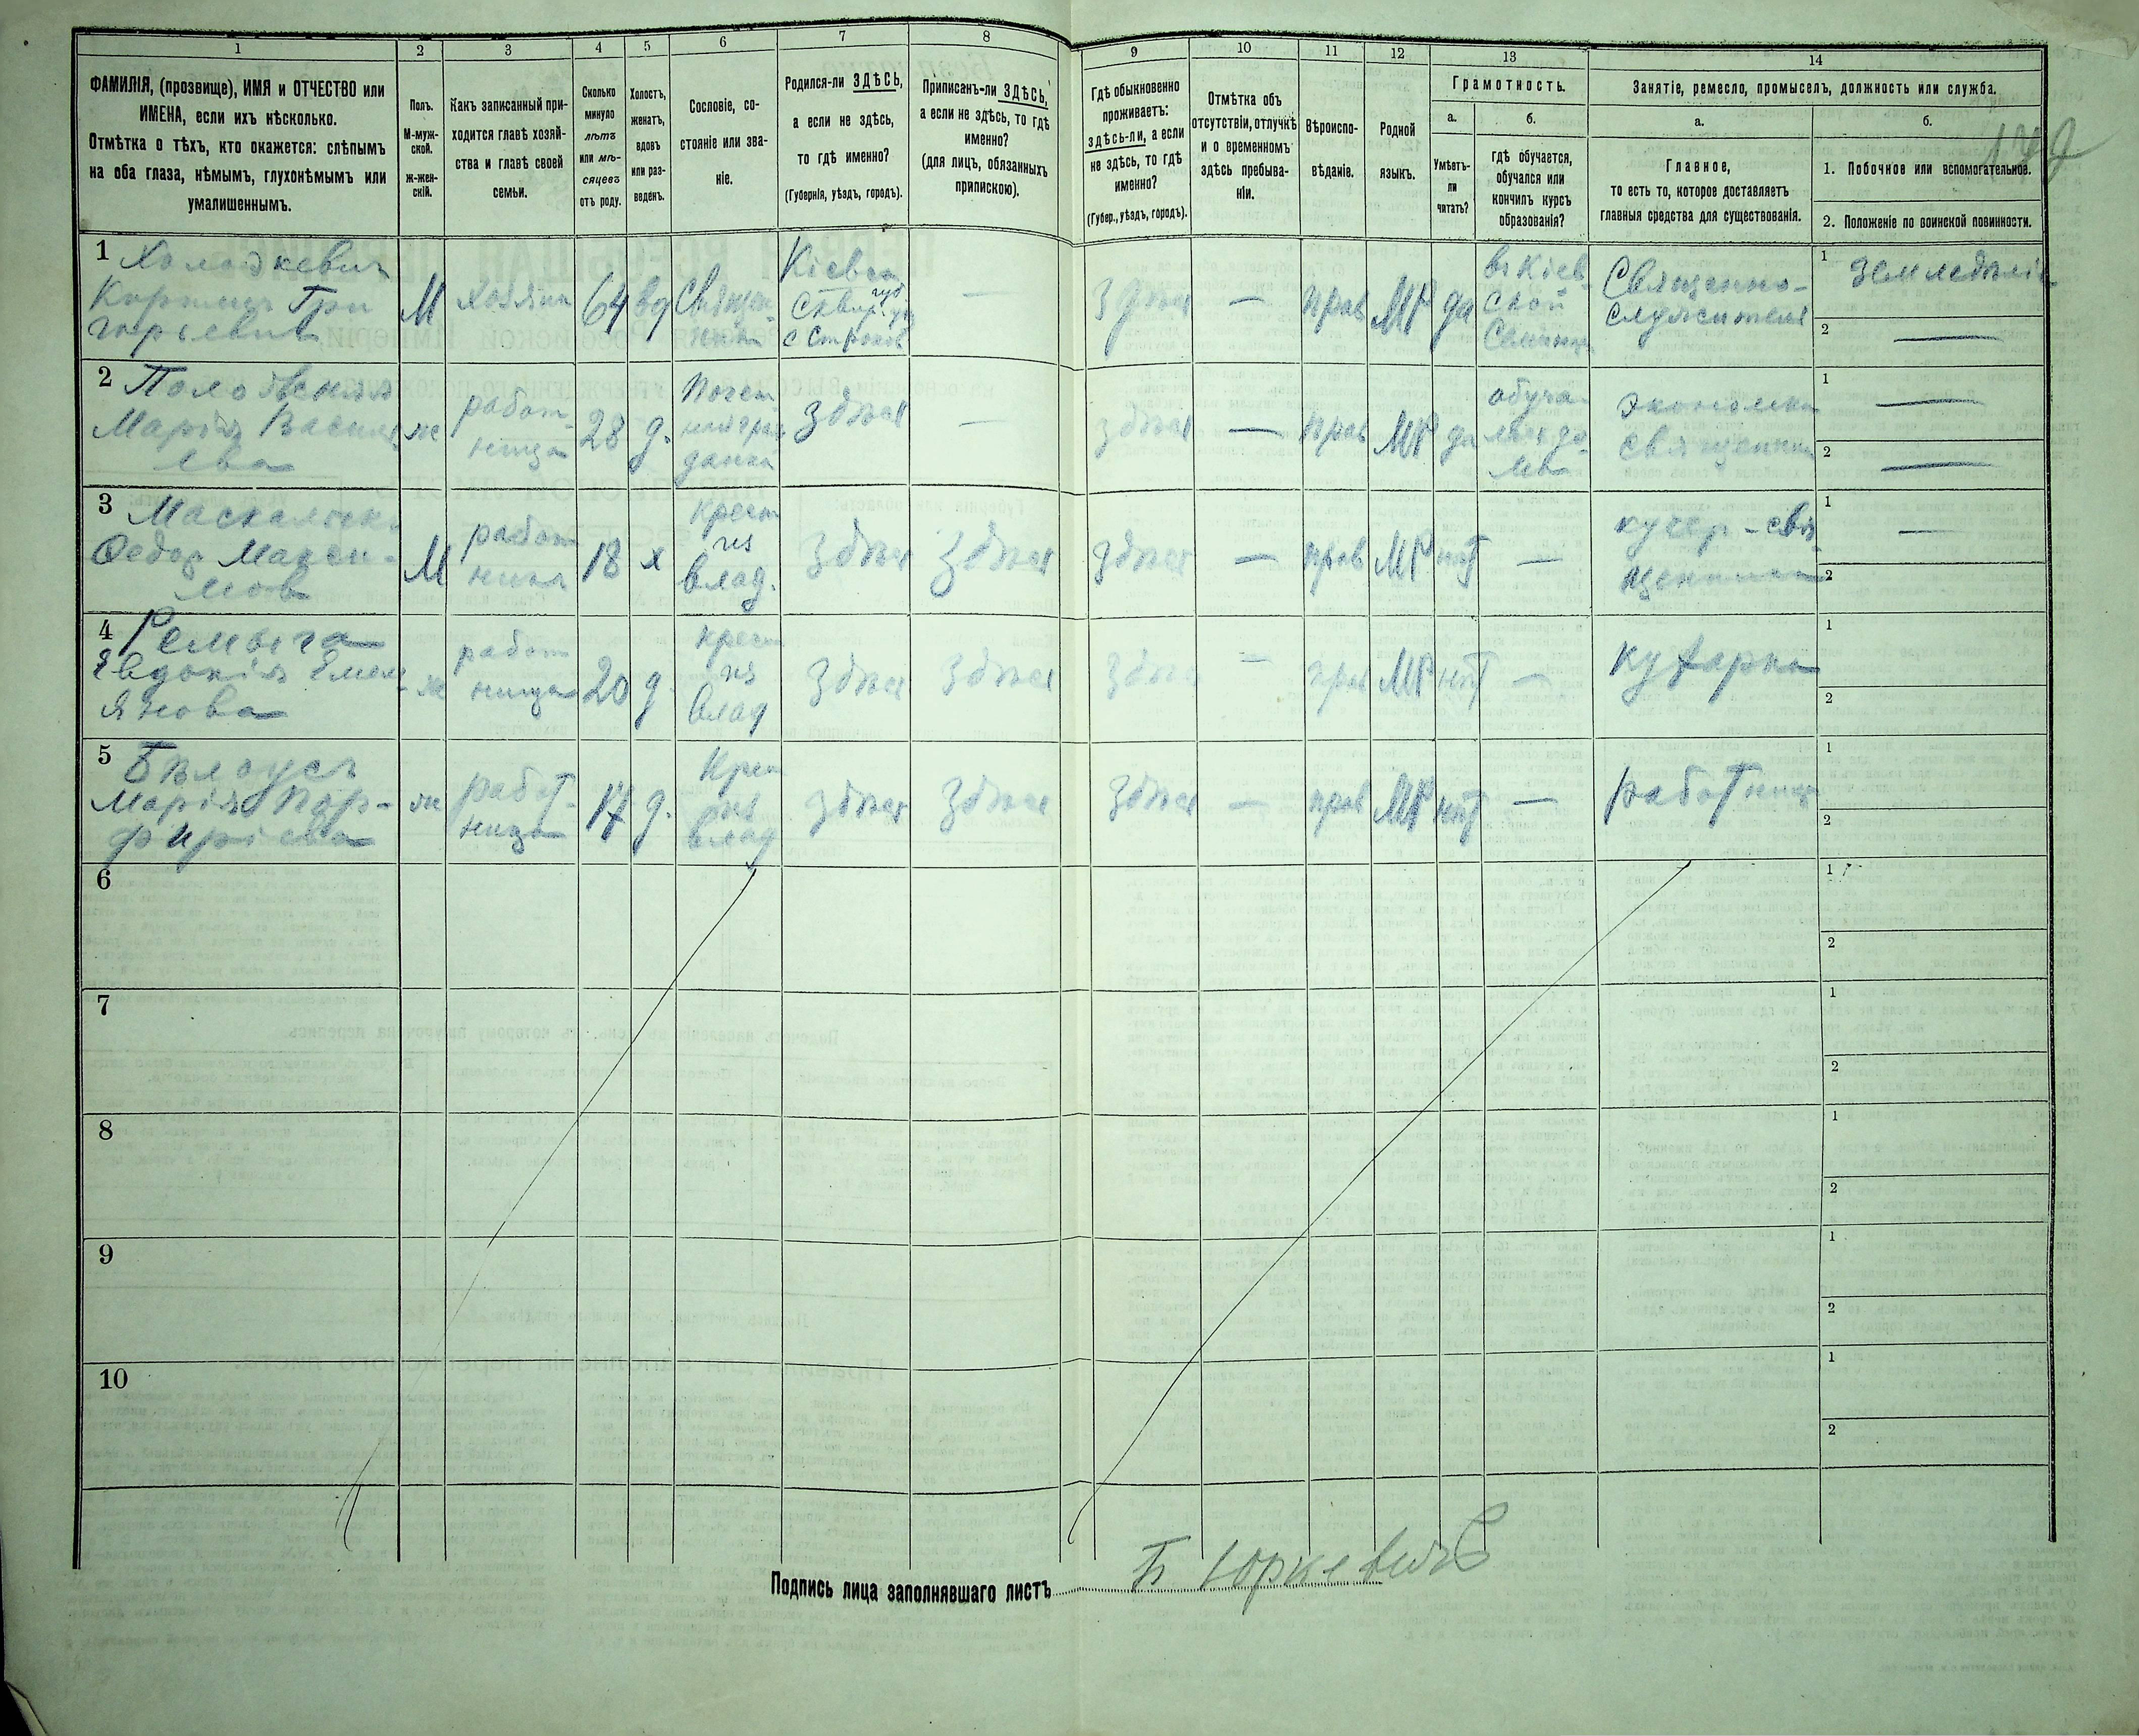 1 2 3 4 5 6 7 8 9 10 11 12 13 14
ФАМИЛІЯ, (прозвище), ИМЯ и ОТЧЕСТВО или
ИМЕНА, если ихъ нѣсколько.
Отмѣтка о тѣхъ, кто окажется: слѣпымъ
на оба глаза, нѣмымъ, глухонѣмымъ или
умалишеннымъ.
Полъ.
М-муж-
ской.
ж-жен-
скій.
Какъ записанный при-
ходится главѣ хозяй-
ства и главѣ своей
семьи.
Сколько
минуло
лѣтъ
или мѣ-
сяцевъ
отъ роду.
Холостъ,
женатъ,
вдовъ
или раз-
веденъ.
Сословіе, со-
стояніе или зва-
ніе.
Родился-ли ЗДѢСЬ,
а если не здѣсь,
то гдѣ именно?
(Губернія, уѣздъ, городъ).
Приписанъ-ли ЗДѢСЬ,
а если не здѣсь, то гдѣ
именно?
(для лицъ, обязанныхъ
припискою).
Гдѣ обыкновенно
проживаетъ:
здѣсь-ли, а если
не здѣсь, то гдѣ
именно?
(Губер., уѣздъ, городъ).
Отмѣтка объ
отсутствіи, отлучкѣ
и о временномъ
здѣсь пребыва-
ніи.
Вѣроиспо-
вѣданіе.
Родной
языкъ.
Грамотность.
а.
Умѣетъ-
ли
читать?
б.
гдѣ обучается,
обучался или
кончилъ курсъ
образованія?
Занятіе, ремесло, промыселъ, должность или служба.
а.
Главное,
то есть то, которое доставляетъ
главныя средства для существованія.
б.
1. Побочное или вспомогательное.
2. Положеніе по воинской повинности.
1 Холодкевич
Гри
горьевич
М
хозяин
64
вд
Священ-
ник
Кіевск
губ
Сквир. у
—
здѣсь
—
прав
МР
да
въ Кіев-
ской
Священно-
служитель
1 Земледѣлі
2 —
2
Марія Василь
ева
ж
работ-
ница
28
д.
Почет
ная граж
данка
здѣсь
—
здѣсь
—
прав
МР
да
обуча-
лась до-
ма
экономка
священника
1 —
2 —
3
Федор Макси-
мов
М
работ
ник
18
х
крест
из
влад.
здѣсь
здѣсь
здѣсь
—
прав
МР
нѣт
—
кучер - свя-
щенника
1 —
2
4
Евдокія Емель-
янова
ж
работ
ница
20
д.
крест
из
влад
здѣсь
здѣсь
здѣсь
—
прав
МР
нѣт
—
кухарка
1
2
5 Бѣлоусъ
Марія Пор-
фиріева
ж
работ-
ница
17
д.
Крест
из
влад
здѣсь
здѣсь
здѣсь
—
прав
МР
нѣт
—
работница
1
2
6
1
2
7
1
2
8
1
2
9
1
2
10
1
2
Подпись лица заполнявшаго листъ Юркевичъ